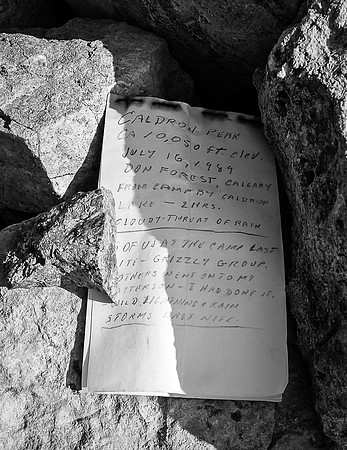 CALDRON PEAK
CA 10,050 ft elev.
JULY 16, 1989
DON FOREST, CALGARY
FROM CAMP BY CALDRON
LAKE - 2 HRS.
CLOUDY-THREAT OF RAIN
OF US AT THE CAMP LAST
NITE- GRIZZLY GROUP.
OTHERS WENT ON TO MT
PATTERSON - I HAD DONE IT.
WILD LIGHTNING & RAIN
STORMS LAST NITE.